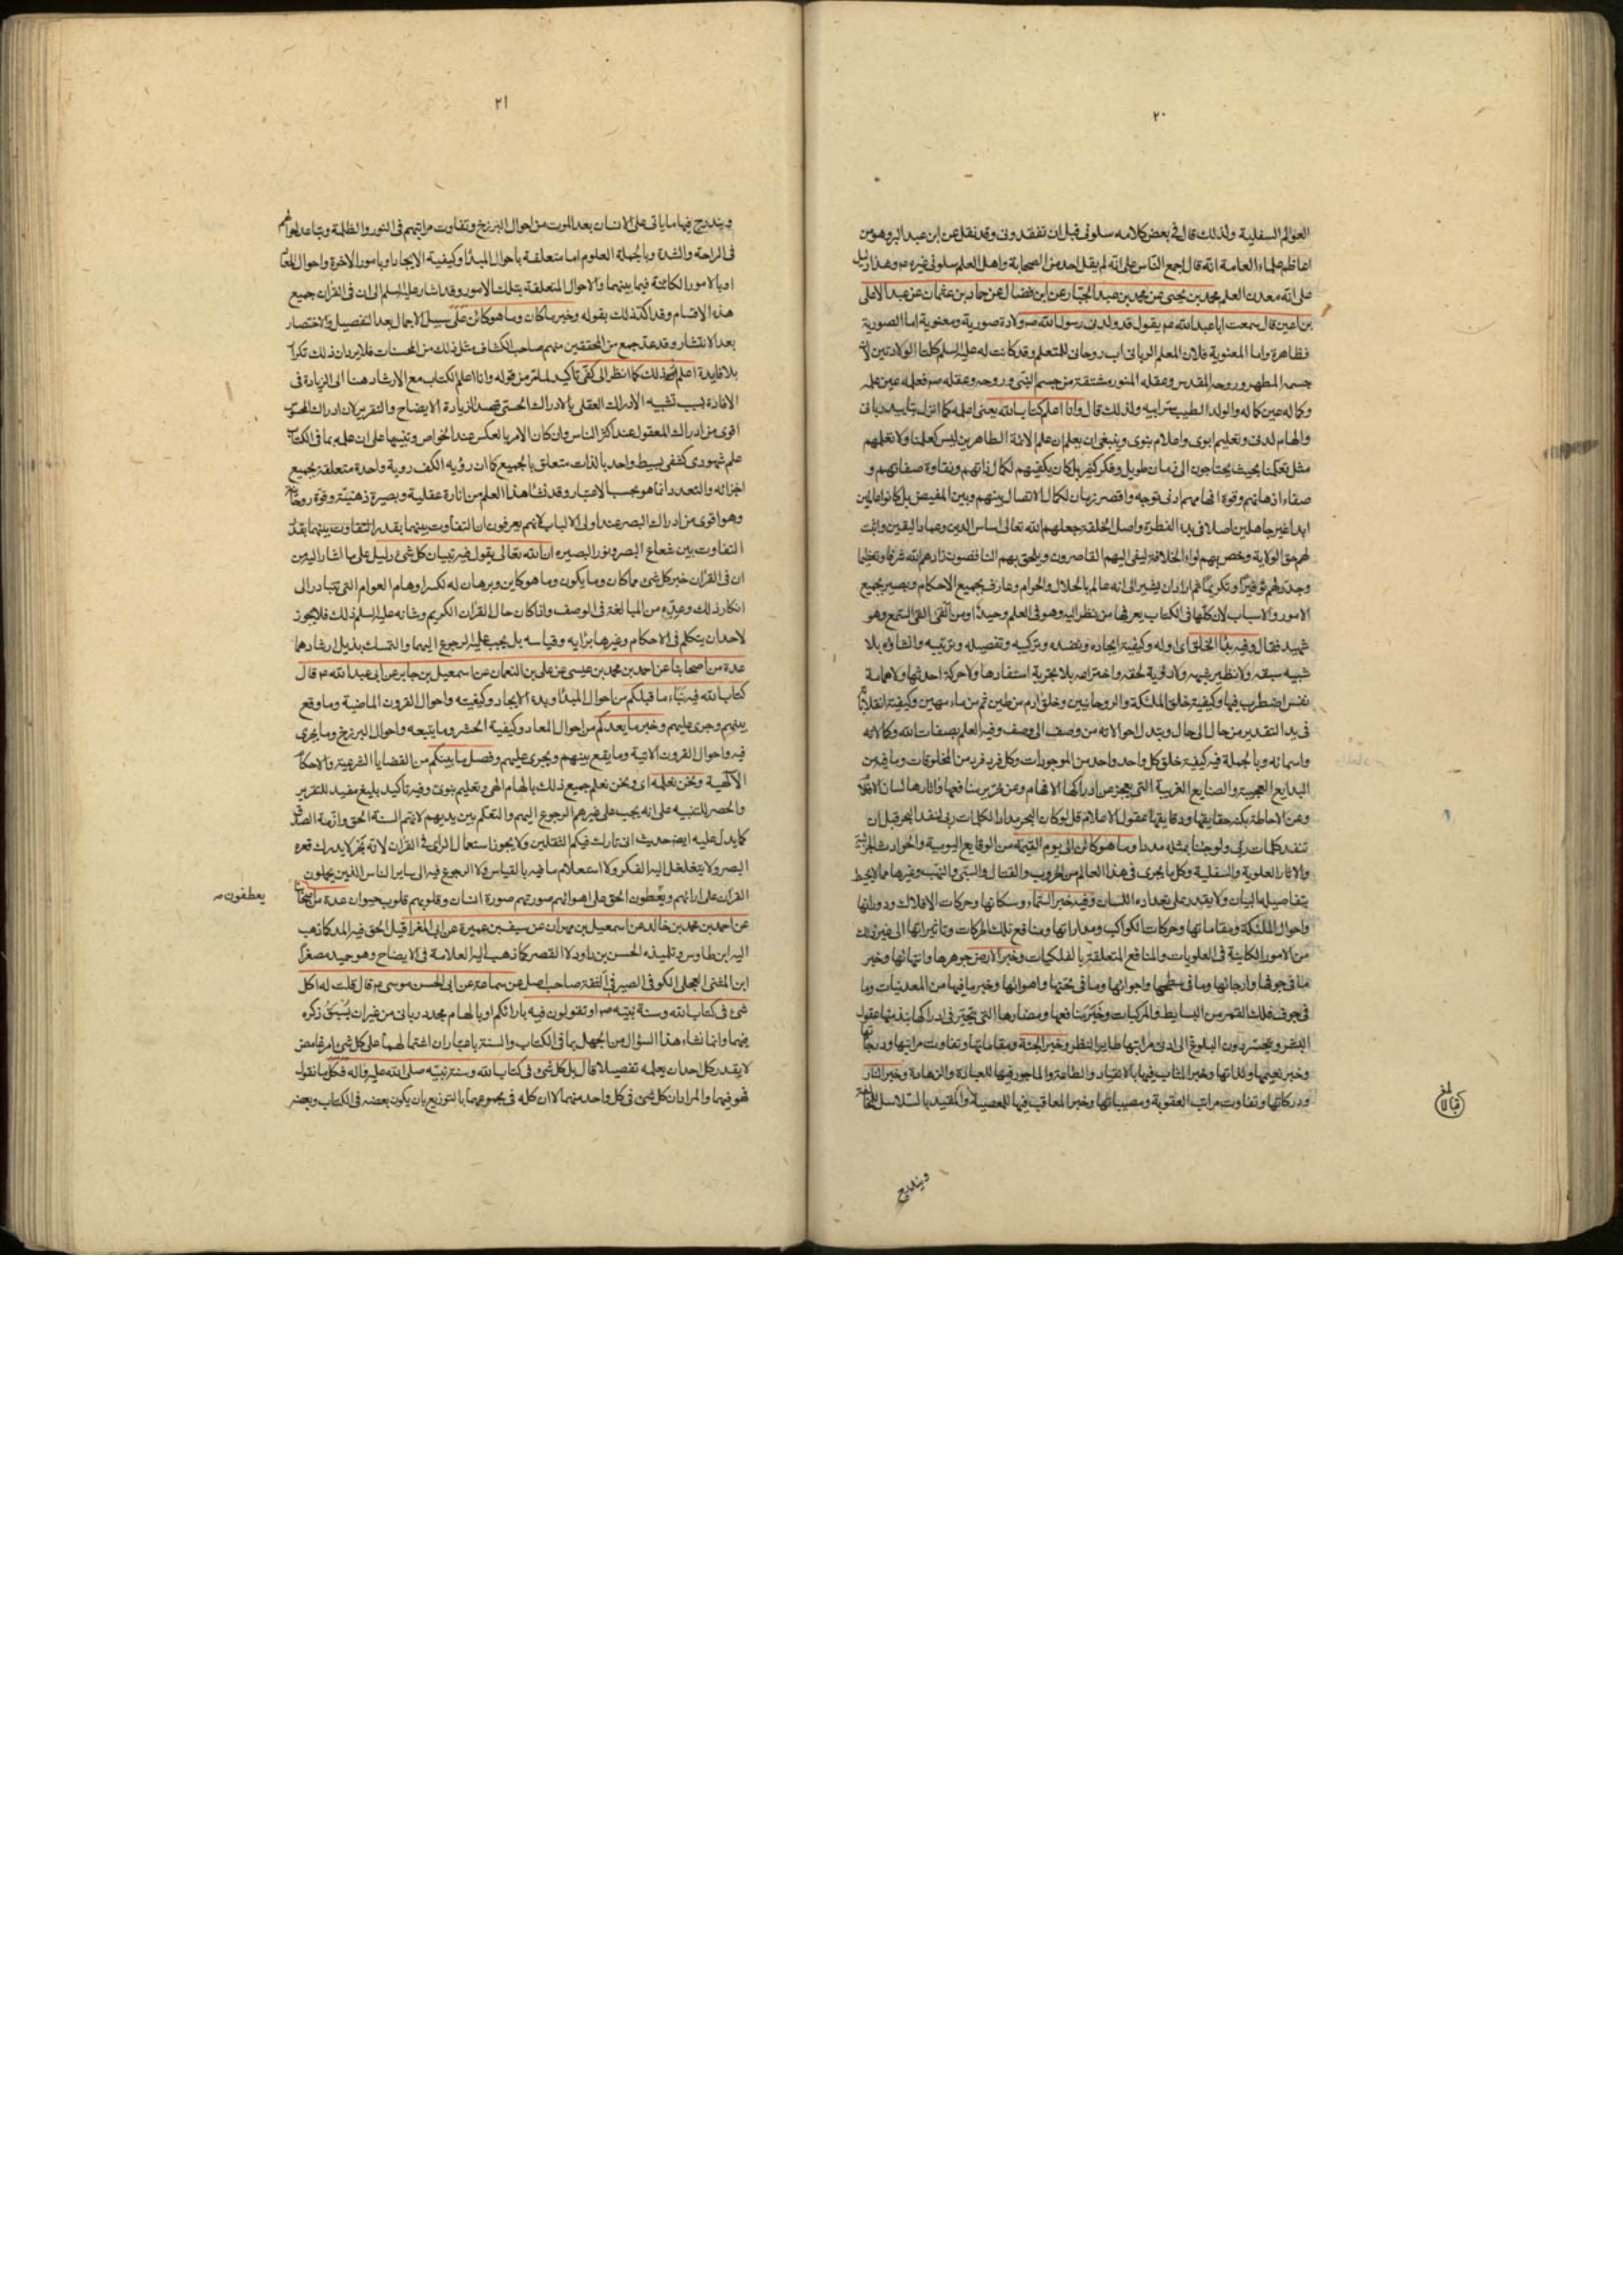 ٢٠
العوالم السفلية ولذلك قال في بعض كلامه سلوني قبل ان تفقدوني وقد نقل عن ابن عبد البر وهو من
اعاظم علماء العامة انه قال اجمع الناس على انه لم يقل احد من الصحابة واهل العلم سلوني غيره ع وهذا دليل
على انه معدن العلم محمد بن يحيى عن محمد بن عبد الجبار عن ابن فضال عن حماد بن عثمان عن عبد الاعلى
بن اعين قال سمعت ابا عبد الله ع يقول قد ولدني رسول الله ص ولادة صورية ومعنوية اما الصورية
فظاهرة واما المعنوية فلان المعلم الرباني اب روحاني للمتعلم وقد كانت له عليه السلم كلتا الولادتين لان
جسمه المطهر وروحه المقدس وعقله المنور مشتقة من جسم النبي وروحه وعقله ص فعلمه عين علمه
وكماله عين كماله والولد الطيب سر ابيه ولذلك قال وانا اعلم كتاب الله يعني اعلمه كما انزل بتاييد رباني
والهام لدني وتعليم ابوي واعلام نبوي وينبغي ان يعلم ان علم الائمة الطاهرين ليس كعلمنا ولا تعلمهم
مثل تعلمنا بحيث يحتاجون الى زمان طويل وفكر كثير بل كان يكفيهم لكمال ذاتهم ونقاوة صفاتهم و
صفاء اذهانهم وقوة افهامهم ادنى توجه واقصر زمان لكمال الاتصال بينهم وبين المفيض بل كانوا عالمين
ابدا غير جاهلين اصلا في بدء الفطرة واصل الخلقة جعلهم الله تعالى اساس الدين وعماد اليقين واثبت
لهم حق الولاية وخص بهم لواء الخلافة ليفئ اليهم القاصرون ويلحق بهم الناقصون زادهم الله شرفا وتعظيما
وجدد لهم توفيرا وتكريما ثم اراد ان يشير الى انه عالم بالحلال والحرام وعارف بجميع الاحكام وبصير بجميع
الامور والاسباب لان كلها في الكتاب يعرفها من نظر اليه وهو في العلم وحيد او من القى السمع وهو
شهيد فقال وفيه بدأ الخلق اي اوله وكيفية ايجاده ونضده وتركيبه وتفصيله وترتيبه وانشاؤه بلا
شبيه سبقه ولا نظير شبهه ولا روية لحقه واختراعه بلا تجربة استفادها ولا حركة احدثها ولا همامة
نفس اضطرب فيها وكيفية خلق الملئكة والروحانيين وخلق ادم من طين ثم من ماء مهين وكيفية انقلاباته
في بدا التقدير من حال الى حال وتبدل احوالاته من وصف الى وصف وفيه العلم بصفات الله وكمالاته
واسمائه وبالجملة فيه كيفية خلق كل واحد واحد من الموجودات وكل فرد فرد من المخلوقات وما فيه من
البدايع العجيبة والصنايع الغريبة التي يعجز عن ادراكها الافهام وعن تحرير منافعها واثارها لسان الاقلام
وعن الاحاطة بكنه حقايقها ودقايقها عقول الاعلام قل لو كان البحر مدادا لكلمات ربي لنفد البحر قبل ان
تنفد كلمات ربي ولو جئنا بمثله مددا وما هو كائن الى يوم القيمة من الوقايع اليومية والحوادث الجزئية
والاثار العلوية والسفلية وكل ما يجري في هذا العالم من الحروب والقتال والسبي والنهب وغيرها مما لا يحيط
بتفاصيله البيان ولا يقدر على تعداده اللسان وفيه خبر السماء وسكانها وحركات الافلاك ودورانها
واحوال الملئكة ومقاماتها وحركات الكواكب ومداراتها ومنافع تلك الحركات وتاثيراتها الى غير ذلك
من الامور الكاينة في العلويات والمنافع المتعلقة بالفلكيات وخبر الارض جوهرها وانتهائها وخبر
ما في جوفها وارجائها وما في سطحها واجوائها وما في تحتها واهوائها وخبر ما فيها من المعدنيات وما
في جوف فلك القمر من البسايط والمركبات وخبر منافعها ومضارها التي يتحير في ادراكها بذمتها عقول
البشر ويتحسر دون البلوغ الى ادنى مراتبها طاير النظر وخبر الجنة ومقاماتها وتفاوت مراتبها ودرجاتها
وخبر نعيمها ولذاتها وخبر المثاب فيها بالانقياد والطاعة والماجور فيها للعبادة والزهادة وخبر النار
ودركاتها وتفاوت مراتب العقوبة ومصيباتها وخبر المعاقب فيها للمعصية والمقيد بالسلاسل
ويندرج
٢١
ويندرج فيها ما ياتي على الانسان بعد الموت من احوال البرزخ وتفاوت مراتبهم في النور والظلمة وتباعد احوالهم
في الراحة والشدة وبالجملة العلوم اما متعلقة باحوال المبدأ وكيفية الايجاد او بامور الاخرة واحوال المعاد
او بالامور الكائنة فيما بينهما والاحوال المتعلقة بتلك الامور وقد اشار عليه السلم الى ان في القران جميع
هذه الاقسام وقد اكد ذلك بقوله وخبر ما كان وما هو كائن على سبيل الاجمال بعد التفصيل والاختصار
بعد الانتشار وقد عد جمع من المحققين منهم صاحب الكشاف مثل ذلك من المحسنات فلا يرد ان ذلك تكرار
بلا فايدة اعلم ذلك كما انظر الى كفي تاكيد لما مر من قوله وانا اعلم الكتاب مع الارشاد هنا الى الزيادة في
الافادة بسبب تشبيه الادراك العقلي بالادراك الحسي قصدا لزيادة الايضاح والتقرير لان ادراك المحسوس
اقوى من ادراك المعقول عند اكثر الناس وان كان الامر بالعكس عند الخواص وتنبيها على ان علمه بما في الكتاب
علم شهودي كشفي بسيط واحد بالذات متعلق بالجميع كما ان رؤيه الكف روية واحدة متعلقة بجميع
اجزائه والتعدد انما هو بحسب الاعتبار وقد نشا هذا العلم من انارة عقلية وبصيرة ذهنية وقوة روحانية
وهو اقوى من ادراك البصر عند اولى الالباب لانهم يعرفون ان التفاوت بينهما بقدر التفاوت بينهما بقدر
التفاوت بين شعاع البصر ونور البصيرة ان الله تعالى يقول فيه تبيان كل شئ دليل على ما اشار اليه من
ان في القران خبر كل شئ مما كان وما يكون وما هو كاين وبرهان له لكسر اوهام العوام التي تتبادر الى
انكار ذلك وعده من المبالغة في الوصف واذا كان حال القران الكريم وشانه عليه السلم ذلك فلا يجوز
لاحد ان يتكلم في الاحكام وغيرها برايه وقياسه بل يجب عليه الرجوع اليهما والتمسك بذيل ارشادهما
عدة من اصحابنا عن احمد بن محمد بن عيسى عن علي بن النعمان عن اسمعيل بن جابر عن ابي عبد الله ع قال
كتاب الله فيه نباء ما قبلكم من احوال المبدأ وبدء الايجاد وكيفيته واحوال القرون الماضية وما وقع
بينهم وجرى عليهم وخبر ما بعدكم من احوال المعاد وكيفية الحشر وما يتبعه واحوال البرزخ وما يجري
فيه واحوال القرون الاتية وما يقع بينهم ويجري عليهم وفصل ما بينكم من القضايا الشرعية والاحكام
الالهية ونحن نعلمه اي ونحن نعلم جميع ذلك بالهام الهي وتعليم نبوي وفيه تاكيد بليغ مفيد للتقرير
والحصر للتنبيه على انه يجب على غيرهم الرجوع اليهم والتعلم بين يديهم لانهم السنة الحق وازمة الصدق
كما يدل عليه ايضا حديث اني تارك فيكم الثقلين ولا يجوز استعمال الراي في القران لانه بحر لا يدرك قعره
البصر ولا يتغلغل اليه الفكر ولا استعلام ما فيه بالقياس ولا الرجوع فيه الى ساير الناس الذين يحملون
القران على ارائهم ويعطون الحق على اهوائهم صورتهم صورة انسان وقلوبهم قلوب حيوان عدة من اصحابنا
يعطفون
عن احمد بن محمد بن خالد عن اسمعيل بن مهران عن سيف بن عميرة عن ابي المغرا قيل الحق فيه المد كما ذهب
اليه ابن طاوس وتلميذه الحسن بن داود لا القصر كما ذهب اليه العلامة في الايضاح وهو حميد مصغرا
ابن المثنى العجلي الكوفي الصيرفي الثقة صاحب اصل عن سماعة عن ابي الحسن موسى ع قال قلت له اكل
شئ في كتاب الله وسنة نبيه ص او تقولون فيه بارائكم او بالهام مجدد رباني من غير ان يسبق ذكره
فيهما وانما نشاء هذا السؤال من الجهل بما في الكتاب والسنة باعتبار ان اشتمالهما على كل شئ امر غامض
لا يقدر كل احد ان يعلمه تفصيلا قال بل كل شئ في كتاب الله وسنة نبيه صلى الله عليه واله فكل ما نقول
فهو فيهما والمراد ان كل شئ في كل واحد منهما لا ان كله في مجموعهما بالتوزيع بان يكون بعضه في الكتاب وبعضه